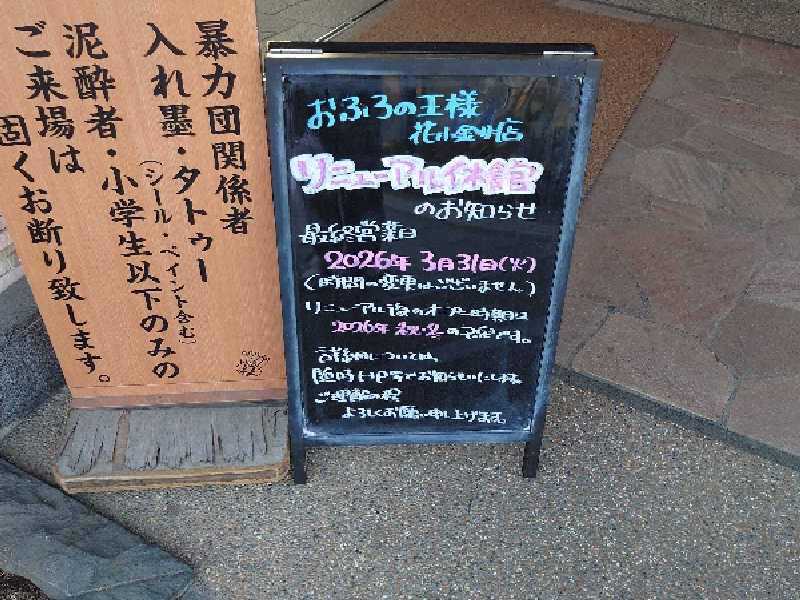 暴力団関係者
入れ墨・タトゥー
(シール・ペイント含む)
泥酔者・小学生以下のみの
ご来場は
固くお断り致します。
おふろの王様
花小金井店
リニューアル休館
のお知らせ
最終営業日
2026年 3月31日(火)
(時間の変更はございません)
リニューアル後のオープン時期は
2026年 秋・冬 の予定です。
詳細については、
随時HP等でお知らせいたします。
ご理解の程
よろしくお願い申し上げます。